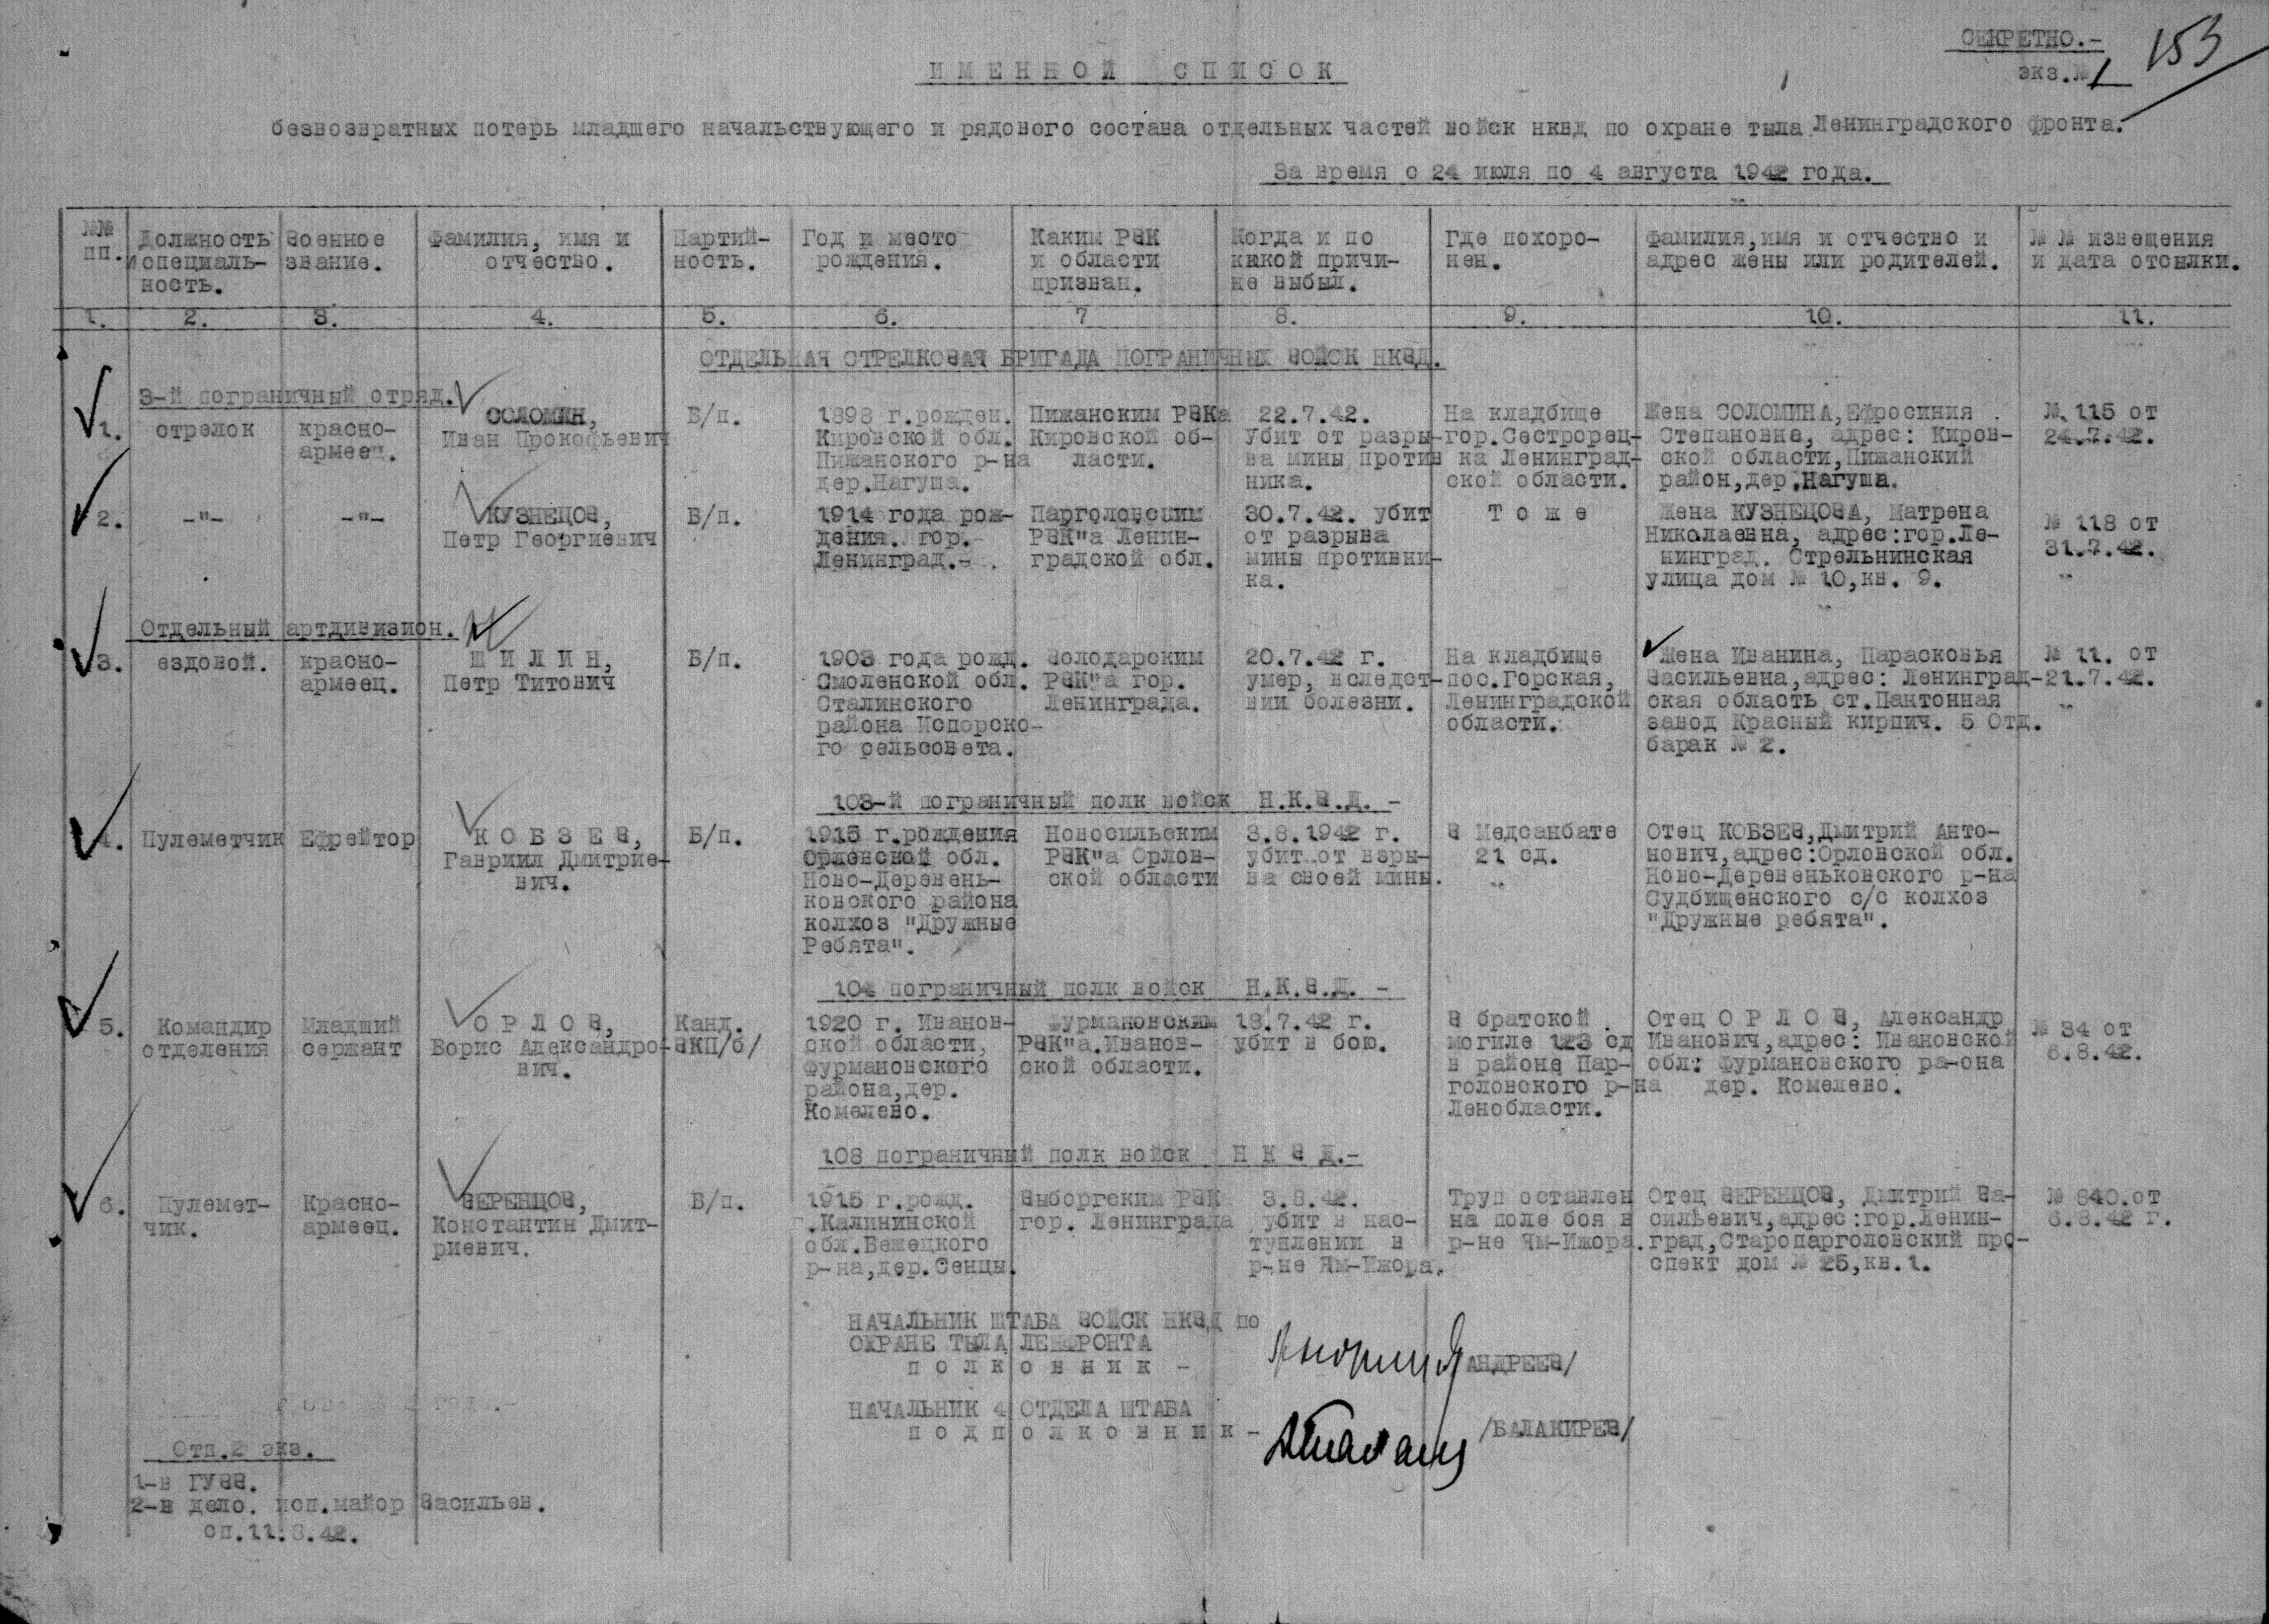 СЕКРЕТНО.-
экз.№ 1
153
ИМЕННОЙ СПИСОК
безвозвратных потерь младшего начальствующего и рядового состава отдельных частей войск НКВД по охране тыла Ленинградского фронта.
За время с 24 июля по 4 августа 1942 года.
№№ пп.
Должность
и специаль-
ность.
Военное
звание.
Фамилия, имя и
отчество.
Партий-
ность.
Год и место
рождения.
Каким РВК
и области
призван.
Когда и по
какой причи-
не выбыл.
Где похоро-
нен.
Фамилия,имя и отчество и
адрес жены или родителей.
№ № извещения
и дата отсылки.
1. 2. 3. 4. 5. 6. 7 8. 9. 10. 11.
ОТДЕЛЬНАЯ СТРЕЛКОВАЯ БРИГАДА ПОГРАНИЧНЫХ ВОЙСК НКВД.
3-й пограничный отряд.
1.
стрелок
красно-
армеец.
СОЛОМИН,
Иван Прокофьевич
Б/п.
1898 г.рожден.
Кировской обл.
Пижанского р-на
дер.Нагуша.
Пижанским РВКа
Кировской об-
ласти.
22.7.42.
Убит от разры-
ва мины против
ника.
На кладбище
гор.Сестрорец-
ка Ленинград-
ской области.
Жена СОЛОМИНА,Ефросиния
Степановна, адрес: Киров-
ской области,Пижанский
район,дер.Нагуша.
№ 115 от
24.7.42.
2.
-"-
-"-
КУЗНЕЦОВ,
Петр Георгиевич
Б/п.
1914 года рож-
дения. гор.
Ленинград.-
Парголовским
РВК"а Ленин-
градской обл.
30.7.42. убит
от разрыва
мины противни-
ка.
Т о ж е
Жена КУЗНЕЦОВА, Матрена
Николаевна, адрес:гор.Ле-
нинград. Стрельнинская
улица дом № 10,кв. 9.
№ 118 от
31.7.42.
Отдельный артдивизион.
3.
ездовой.
красно-
армеец.
Ш И Л И Н,
Петр Титович
Б/п.
1903 года рожд.
Смоленской обл.
Сталинского
района Испорско-
го сельсовета.
Володарским
РВК"а гор.
Ленинграда.
20.7.42 г.
умер, вследст-
вии болезни.
На кладбище
пос.Горская,
Ленинградской
области.
Жена Иванина, Парасковья
Васильевна,адрес: Ленинград-
ская область ст.Пантонная
завод Красный кирпич. 5 Отд.
барак № 2.
№ 11. от
21.7.42.
103-й пограничный полк войск Н.К.В.Д. -
4.
Пулеметчик
Ефрейтор
К О Б З Е В,
Гавриил Дмитрие-
вич.
Б/п.
1915 г.рождения
Орловской обл.
Ново-Деревень-
ковского района
колхоз "Дружные
Ребята".
Новосильским
РВК"а Орлов-
ской области
3.8.1942 г.
убит от взры-
ва своей мины.
В Медсанбате
21 сд.
Отец КОБЗЕВ,Дмитрий Анто-
нович,адрес:Орловской обл.
Ново-Деревеньковского р-на
Судбищенского с/с колхоз
"Дружные ребята".
104 пограничный полк войск Н.К.В.Д. -
5.
Командир
отделения
Младший
сержант
О Р Л О В,
Борис Александро-
вич.
Канд.
ВКП/б/
1920 г. Иванов-
ской области,
Фурмановского
района,дер.
Комелево.
Фурмановским
РВК"а.Иванов-
ской области.
18.7.42 г.
убит в бою.
В братской
могиле 123 сд
в районе Пар-
головского р-на
Ленобласти.
Отец О Р Л О В, Александр
Иванович,адрес: Ивановской
обл: Фурмановского ра-она
дер. Комелево.
№ 34 от
6.8.42.
108 пограничный полк войск Н К В Д.-
6.
Пулемет-
чик.
Красно-
армеец.
ВЕРЕНЦОВ,
Константин Дмит-
риевич.
Б/п.
1915 г.рожд.
г.Калининской
обл.Бежецкого
р-на,дер.Сенцы.
Выборгским РВК
гор. Ленинграда
3.8.42.
убит в нас-
туплении в
р-не Ям-Ижора.
Труп оставлен
на поле боя в
р-не Ям-Ижора.
Отец ВЕРЕНЦОВ, Дмитрий Ва-
сильевич,адрес:гор.Ленин-
град,Старопарголовский про-
спект дом № 25,кв.1.
№ 840.от
6.8.42 г.
НАЧАЛЬНИК ШТАБА ВОЙСК НКВД по
ОХРАНЕ ТЫЛА ЛЕНФРОНТА
п о л к о в н и к -
АНДРЕЕВ/
НАЧАЛЬНИК 4 ОТДЕЛА ШТАБА
п о д п о л к о в н и к -
/БАЛАКИРЕВ/
Отп.2 экз.
1-в ГУВВ.
2-в дело. исп.майор Васильев.
сп.11.8.42.